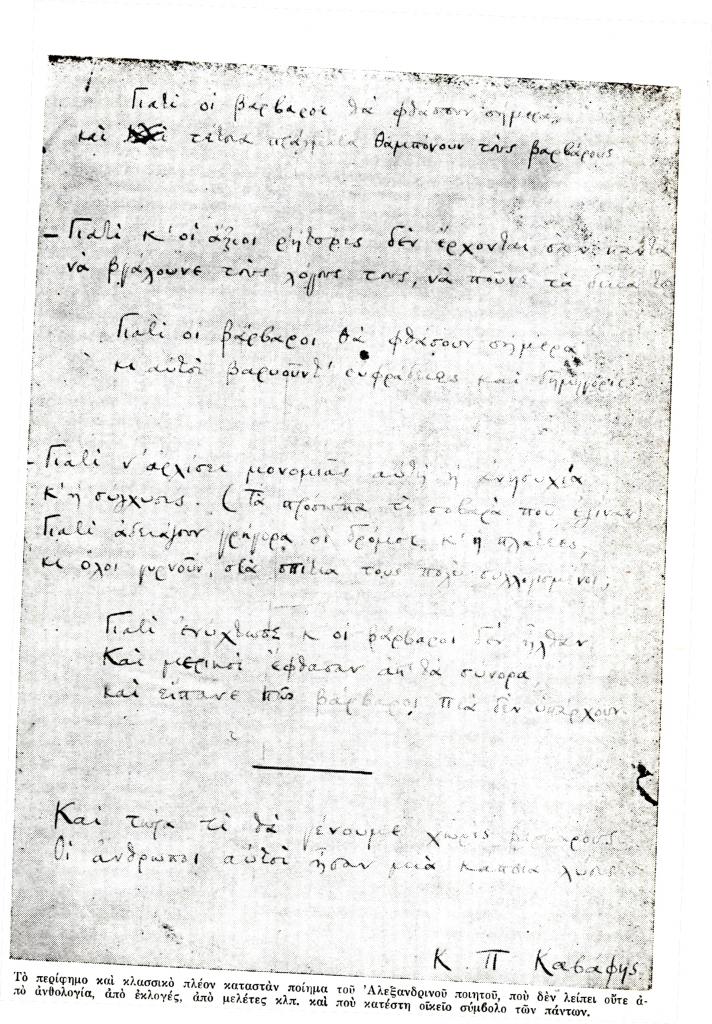 Γιατὶ οἱ βάρβαροι θὰ φθάσουν σήμερα,
καὶ τέτοια πράγματα θαμπόνουν τοὺς βαρβάρους
— Γιατὶ κ' οἱ ἄξιοι ρήτορες δὲν ἔρχονται σὰν πάντα
νὰ βγάλουνε τοὺς λόγους τους, νὰ ποῦνε τὰ δικά
Γιατὶ οἱ βάρβαροι θὰ φθάσουν σήμερα
κι αὐτοὶ βαρυοῦντ' εὐφράδειες καὶ δημηγορίες
— Γιατὶ ν' ἀρχίσει μονομιᾶς αὐτὴ ἡ ἀνησυχία
κ' ἡ σύγχυσις. (Τὰ πρόσωπα τί σοβαρὰ ποὺ ἔγιναν)
Γιατὶ ἀδειάζουν γρήγορα οἱ δρόμοι κ' ἡ πλατέες,
κι ὅλοι γυρνοῦν στὰ σπίτια τους πολὺ συλλογισμένοι,
Γιατὶ ἐνύχτωσε κ οἱ βάρβαροι δὲν ἦλθαν
Καὶ μερικοὶ ἔφθασαν ἀπ' τὰ σύνορα,
καὶ εἴπανε πῶς βάρβαροι πιὰ δὲν ὑπάρχουν.
Καὶ τώρα τί θὰ γένουμε χωρὶς βαρβάρους
Οἱ ἄνθρωποι αὐτοὶ ἦσαν μιὰ κάποια λύσις
Κ Π Καβάφης
Τὸ περίφημο καὶ κλασσικὸ πλέον καταστὰν ποίημα τοῦ Ἀλεξανδρινοῦ ποιητοῦ, ποὺ δὲν λείπει οὔτε ἀ-
πὸ ἀνθολογία, ἀπὸ ἐκλογές, ἀπὸ μελέτες κλπ. καὶ ποὺ κατέστη οἰκεῖο σύμβολο τῶν πάντων.